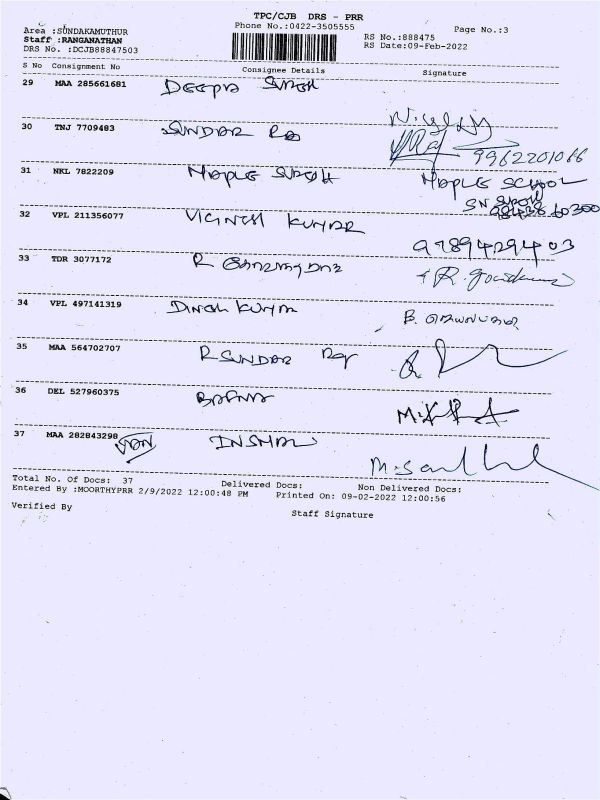 TPC/CJB DRS - PRR
Phone No.:0422-3505555
Page No.:3
Area :SUNDAKAMUTHUR
Staff :RANGANATHAN
DRS No. :DCJB88847503
RS No.:888475
RS Date:09-Feb-2022
S No Consignment No Consignee Details Signature
29 MAA 285661681 DEEPA SURESH
30 TNJ 7709483 SUNDAR
9962201066
31 NKL 7822209 MAPLE MAPLE SCHOOL
32 VPL 211356077 VIGNESH KUMAR
9789429403
33 TDR 3077172 R
34 VPL 497141319 DINESH KUMAR B.
35 MAA 564702707 R SUNDAR RAJ
36 DEL 527960375 BAFNA
37 MAA 282843298
Total No. Of Docs: 37 Delivered Docs: Non Delivered Docs:
Entered By :MOORTHYPRR 2/9/2022 12:00:48 PM Printed On: 09-02-2022 12:00:56
Verified By
Staff Signature